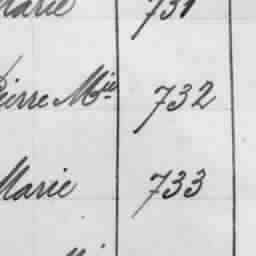 Marie 731
Pierre Mie 732
Marie 733